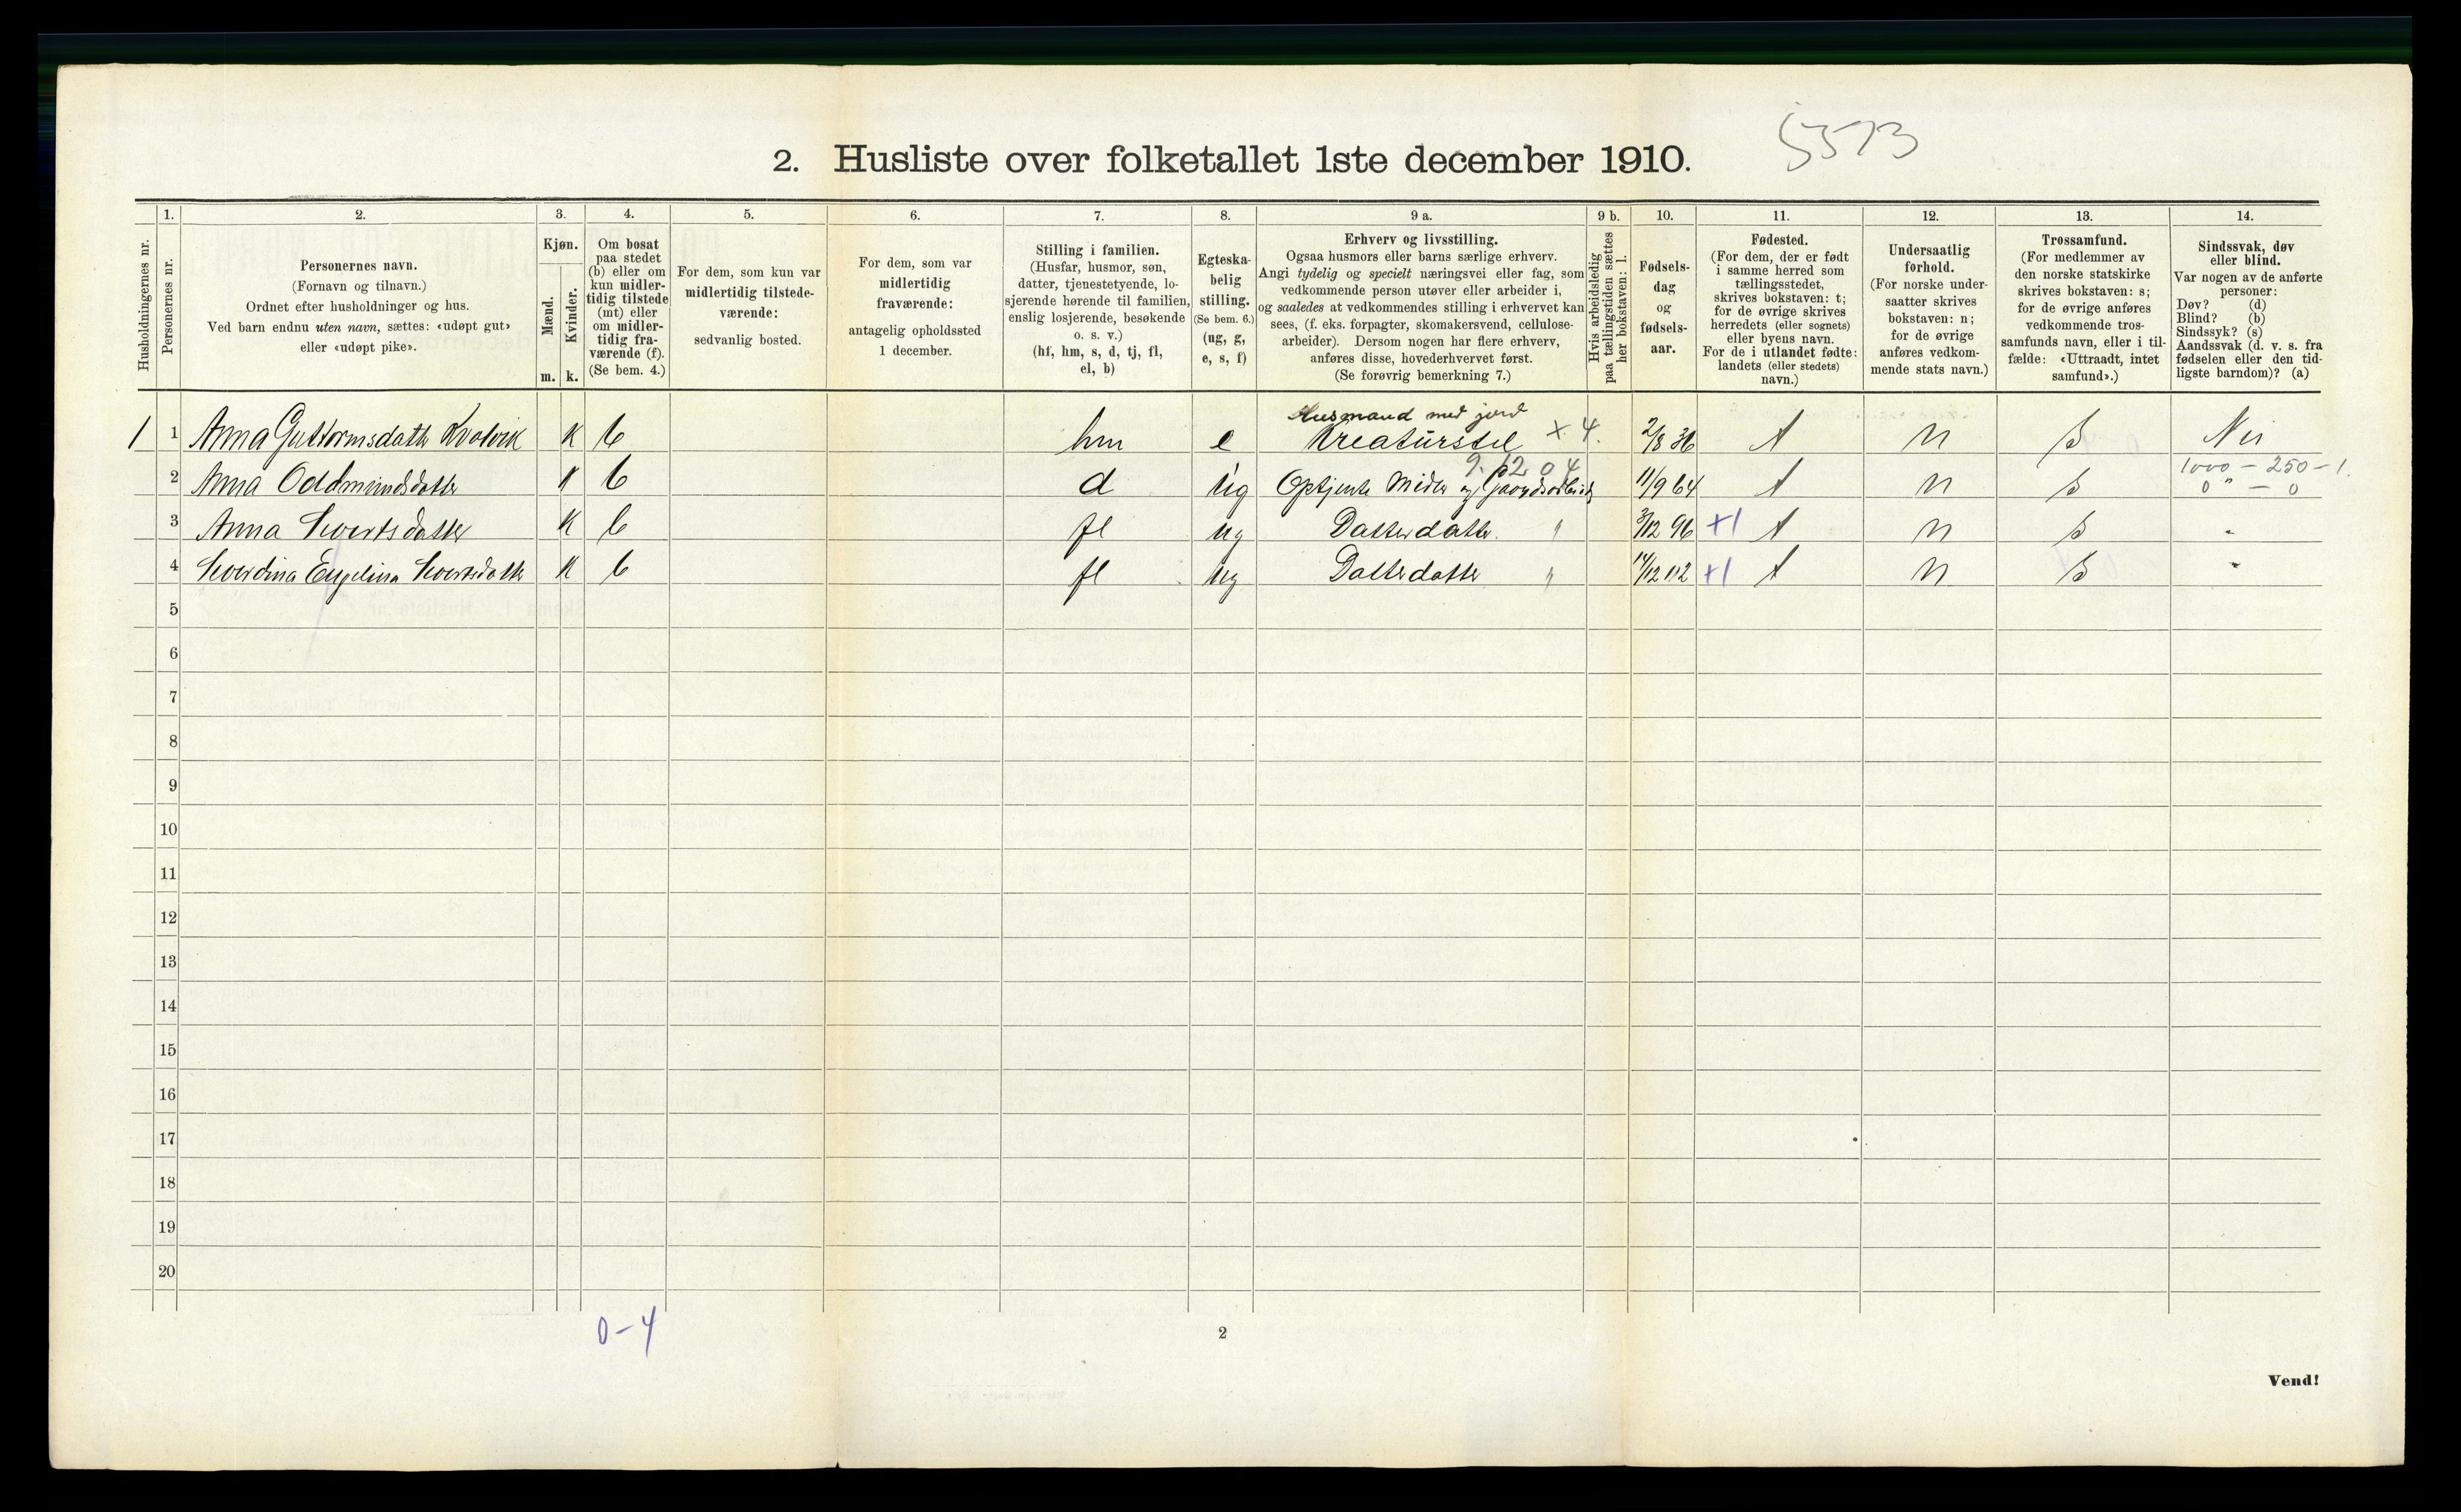 5573
2. Husliste over folketallet 1ste december 1910.
Husholdningernes nr.
1.
Personernes nr.
2.
Personernes navn.
(Fornavn og tilnavn.)
Ordnet efter husholdninger og hus.
Ved barn endnu uten navn, sættes: «udøpt gut»
eller «udøpt pike».
3.
Kjøn.
Mænd.
Kvinder.
m. k.
4.
Om bosat
paa stedet
(b) eller om
kun midler-
tidig tilstede
(mt) eller
om midler-
tidig fra-
værende (f).
(Se bem. 4.)
5.
For dem, som kun var
midlertidig tilstede-
værende:
sedvanlig bosted.
6.
For dem, som var
midlertidig
fraværende:
antagelig opholdssted
1 december.
7.
Stilling i familien.
(Husfar, husmor, søn,
datter, tjenestetyende, lo-
sjerende hørende til familien,
enslig losjerende, besøkende
o. s. v.)
(hf, hm, s, d, tj, fl,
el, b)
8.
Egteska-
belig
stilling.
(Se bem. 6.)
(ug, g,
e, s, f)
9 a.
Erhverv og livsstilling.
Ogsaa husmors eller barns særlige erhverv.
Angi tydelig og specielt næringsvei eller fag, som
vedkommende person utøver eller arbeider i,
og saaledes at vedkommendes stilling i erhvervet kan
sees, (f. eks. forpagter, skomakersvend, cellulose-
arbeider). Dersom nogen har flere erhverv,
anføres disse, hovederhvervet først.
(Se forøvrig bemerkning 7.)
9 b.
Hvis arbeidsledig
paa tællingstiden sættes
her bokstaven: l.
10.
Fødsels-
dag
og
fødsels-
aar.
11.
Fødested.
(For dem, der er født
i samme herred som
tællingsstedet,
skrives bokstaven: t;
for de øvrige skrives
herredets (eller sognets)
eller byens navn.
For de i utlandet fødte:
landets (eller stedets)
navn.)
12.
Undersaatlig
forhold.
(For norske under-
saatter skrives
bokstaven: n;
for de øvrige
anføres vedkom-
mende stats navn.)
13.
Trossamfund.
(For medlemmer av
den norske statskirke
skrives bokstaven: s;
for de øvrige anføres
vedkommende tros-
samfunds navn, eller i til-
fælde: «Uttraadt, intet
samfund».)
14.
Sindssvak, døv
eller blind.
Var nogen av de anførte
personer:
Døv? (d)
Blind? (b)
Sindssyk? (s)
Aandssvak (d. v. s. fra
fødselen eller den tid-
ligste barndom)? (a)
Husmand med jord
1 1 Anna Guttormsdatter K b hm e Kreaturstel x 4. 2/8 36 t n s Nei
9. 12 0 4 1000 - 250 - 1.
2 Anna Oddmundsdatter K b d ug Optjente Midler og Gaardsarbeide 11/9 64 t n s 0 " - 0
3 Anna Sivertsdatter K b fl ug Datterdatter " 3/12 96 +1 t n s "
4 Engelina Sivertsdatter K b fl ug Datterdatter " +1 t n s "
5
6
7
8
9
10
11
12
13
14
15
16
17
18
19
20
0-4
2
Vend!